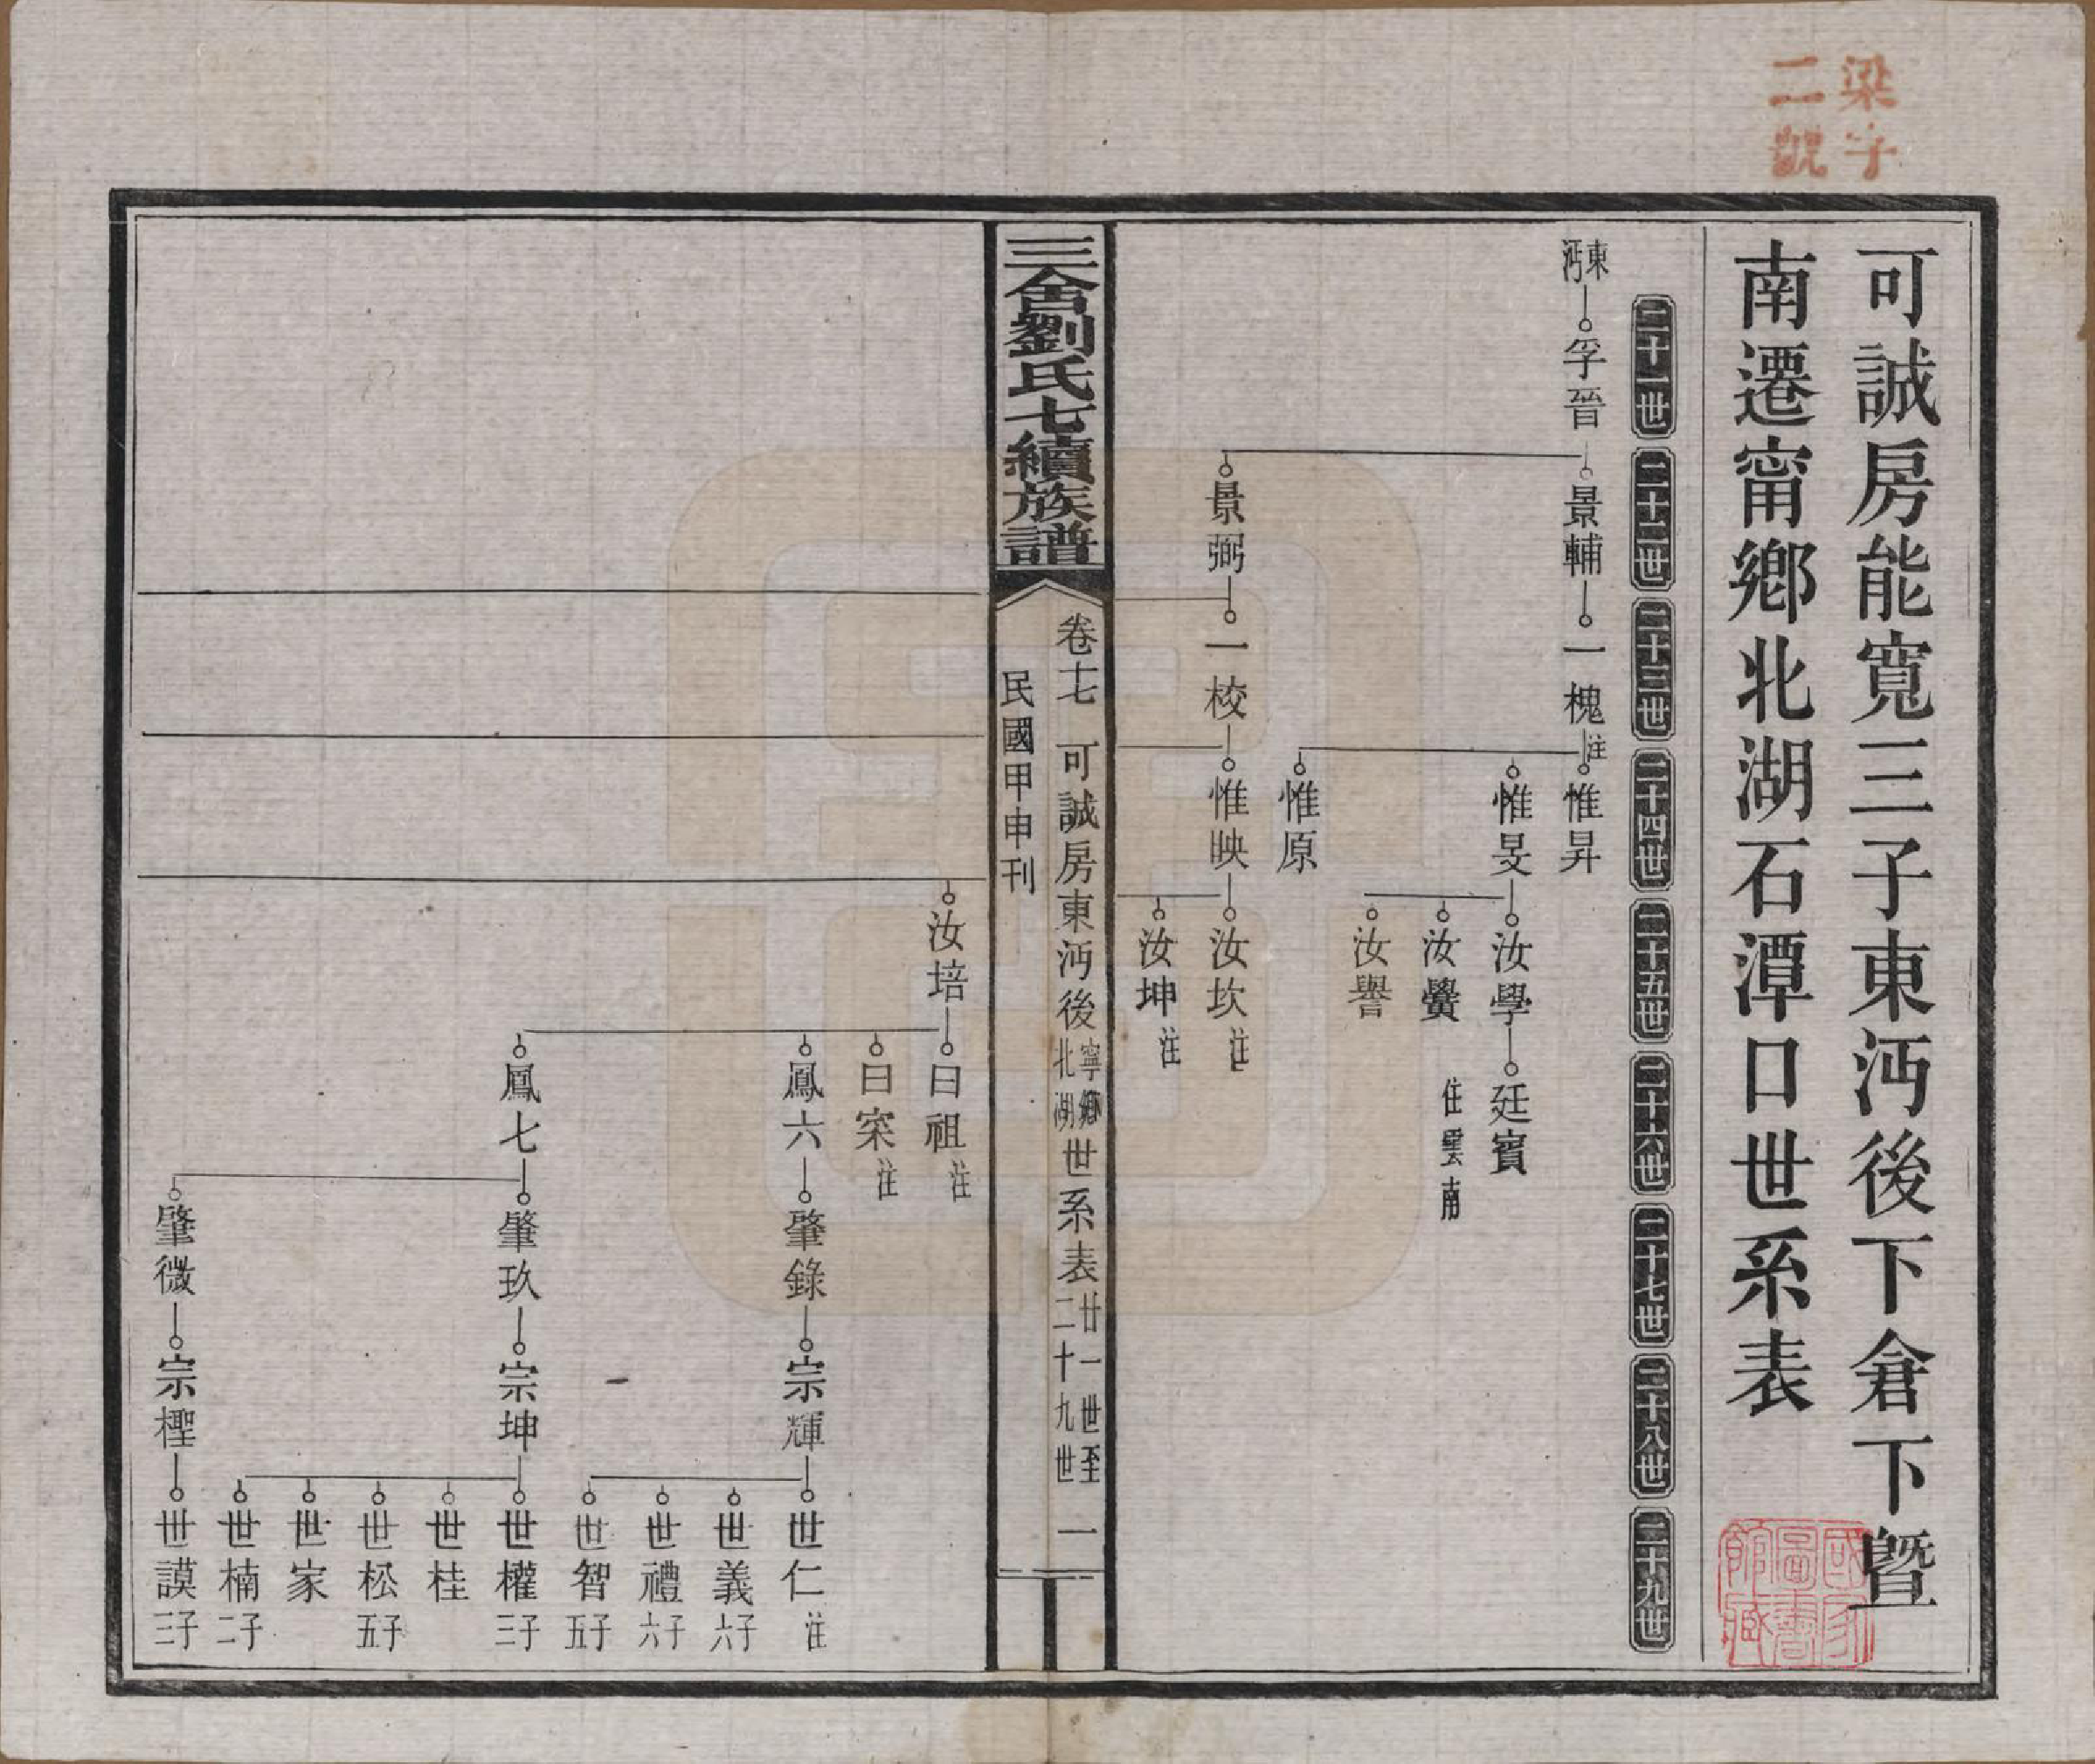 梁字
二號
可誠房能寬三子東沔後下倉下暨
南遷甯鄉北湖石潭口世系表
二十一世
二十二世
二十三世
二十四世
二十五世
二十六世
二十七世
二十八世
二十九世
東沔
孚晉
景輔
一槐 注
惟昇
惟旻
汝學
廷賓
汝黌 住雲南
汝譽
惟原
景弼
一校
惟映
汝坎 注
汝坤 注
三舍劉氏七續族譜
卷十七 可誠房東沔後寧鄉北湖世系表廿一世至二十九世 一
民國甲申刊
汝培
曰祖 注
曰寀 注
鳳六
肇錄
宗輝
世仁 注
世義 六子
世禮 六子
世智 五子
鳳七
肇玖
宗坤
世權 三子
世桂
世松 五子
世家
世楠 二子
肇微
宗檉
世謨 三子
國家圖書館藏